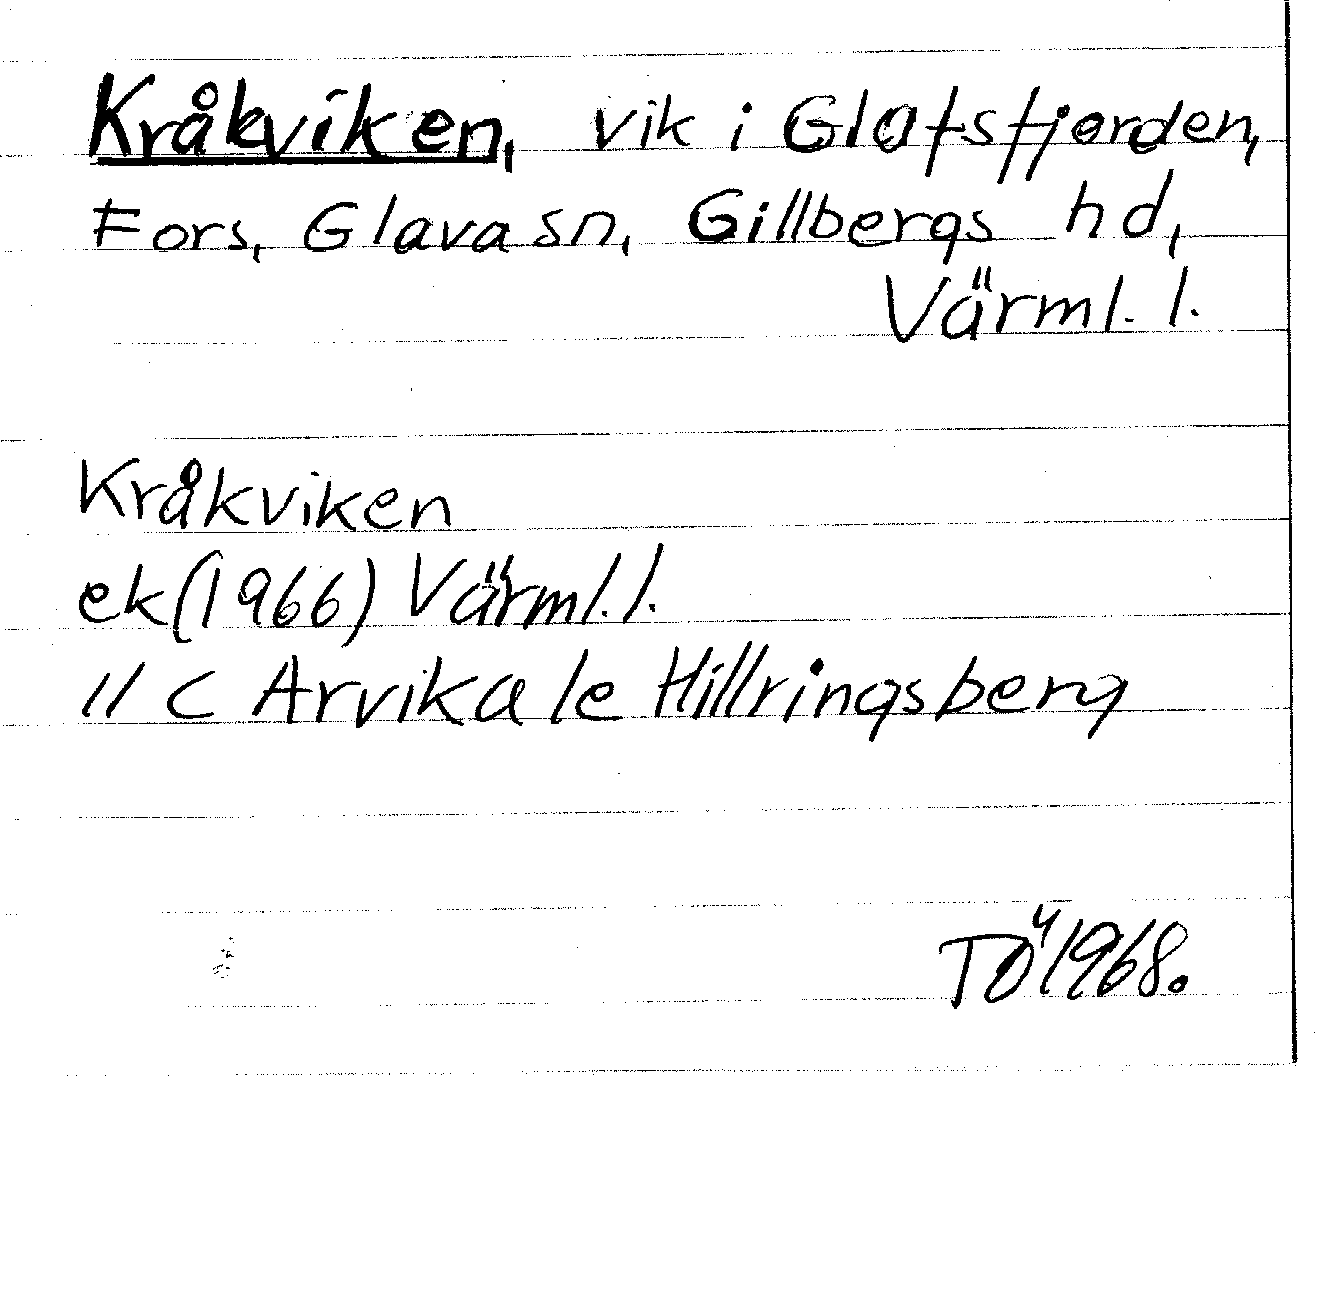 Kråkviken, vik i Glafsfjorden,
Fors, Glava sn, Gillbergs hd,
Värml. l.
Kråkviken
ek (1966) Värml. l.
11 C Arvika le Hillringsberg
TÖ 1968.